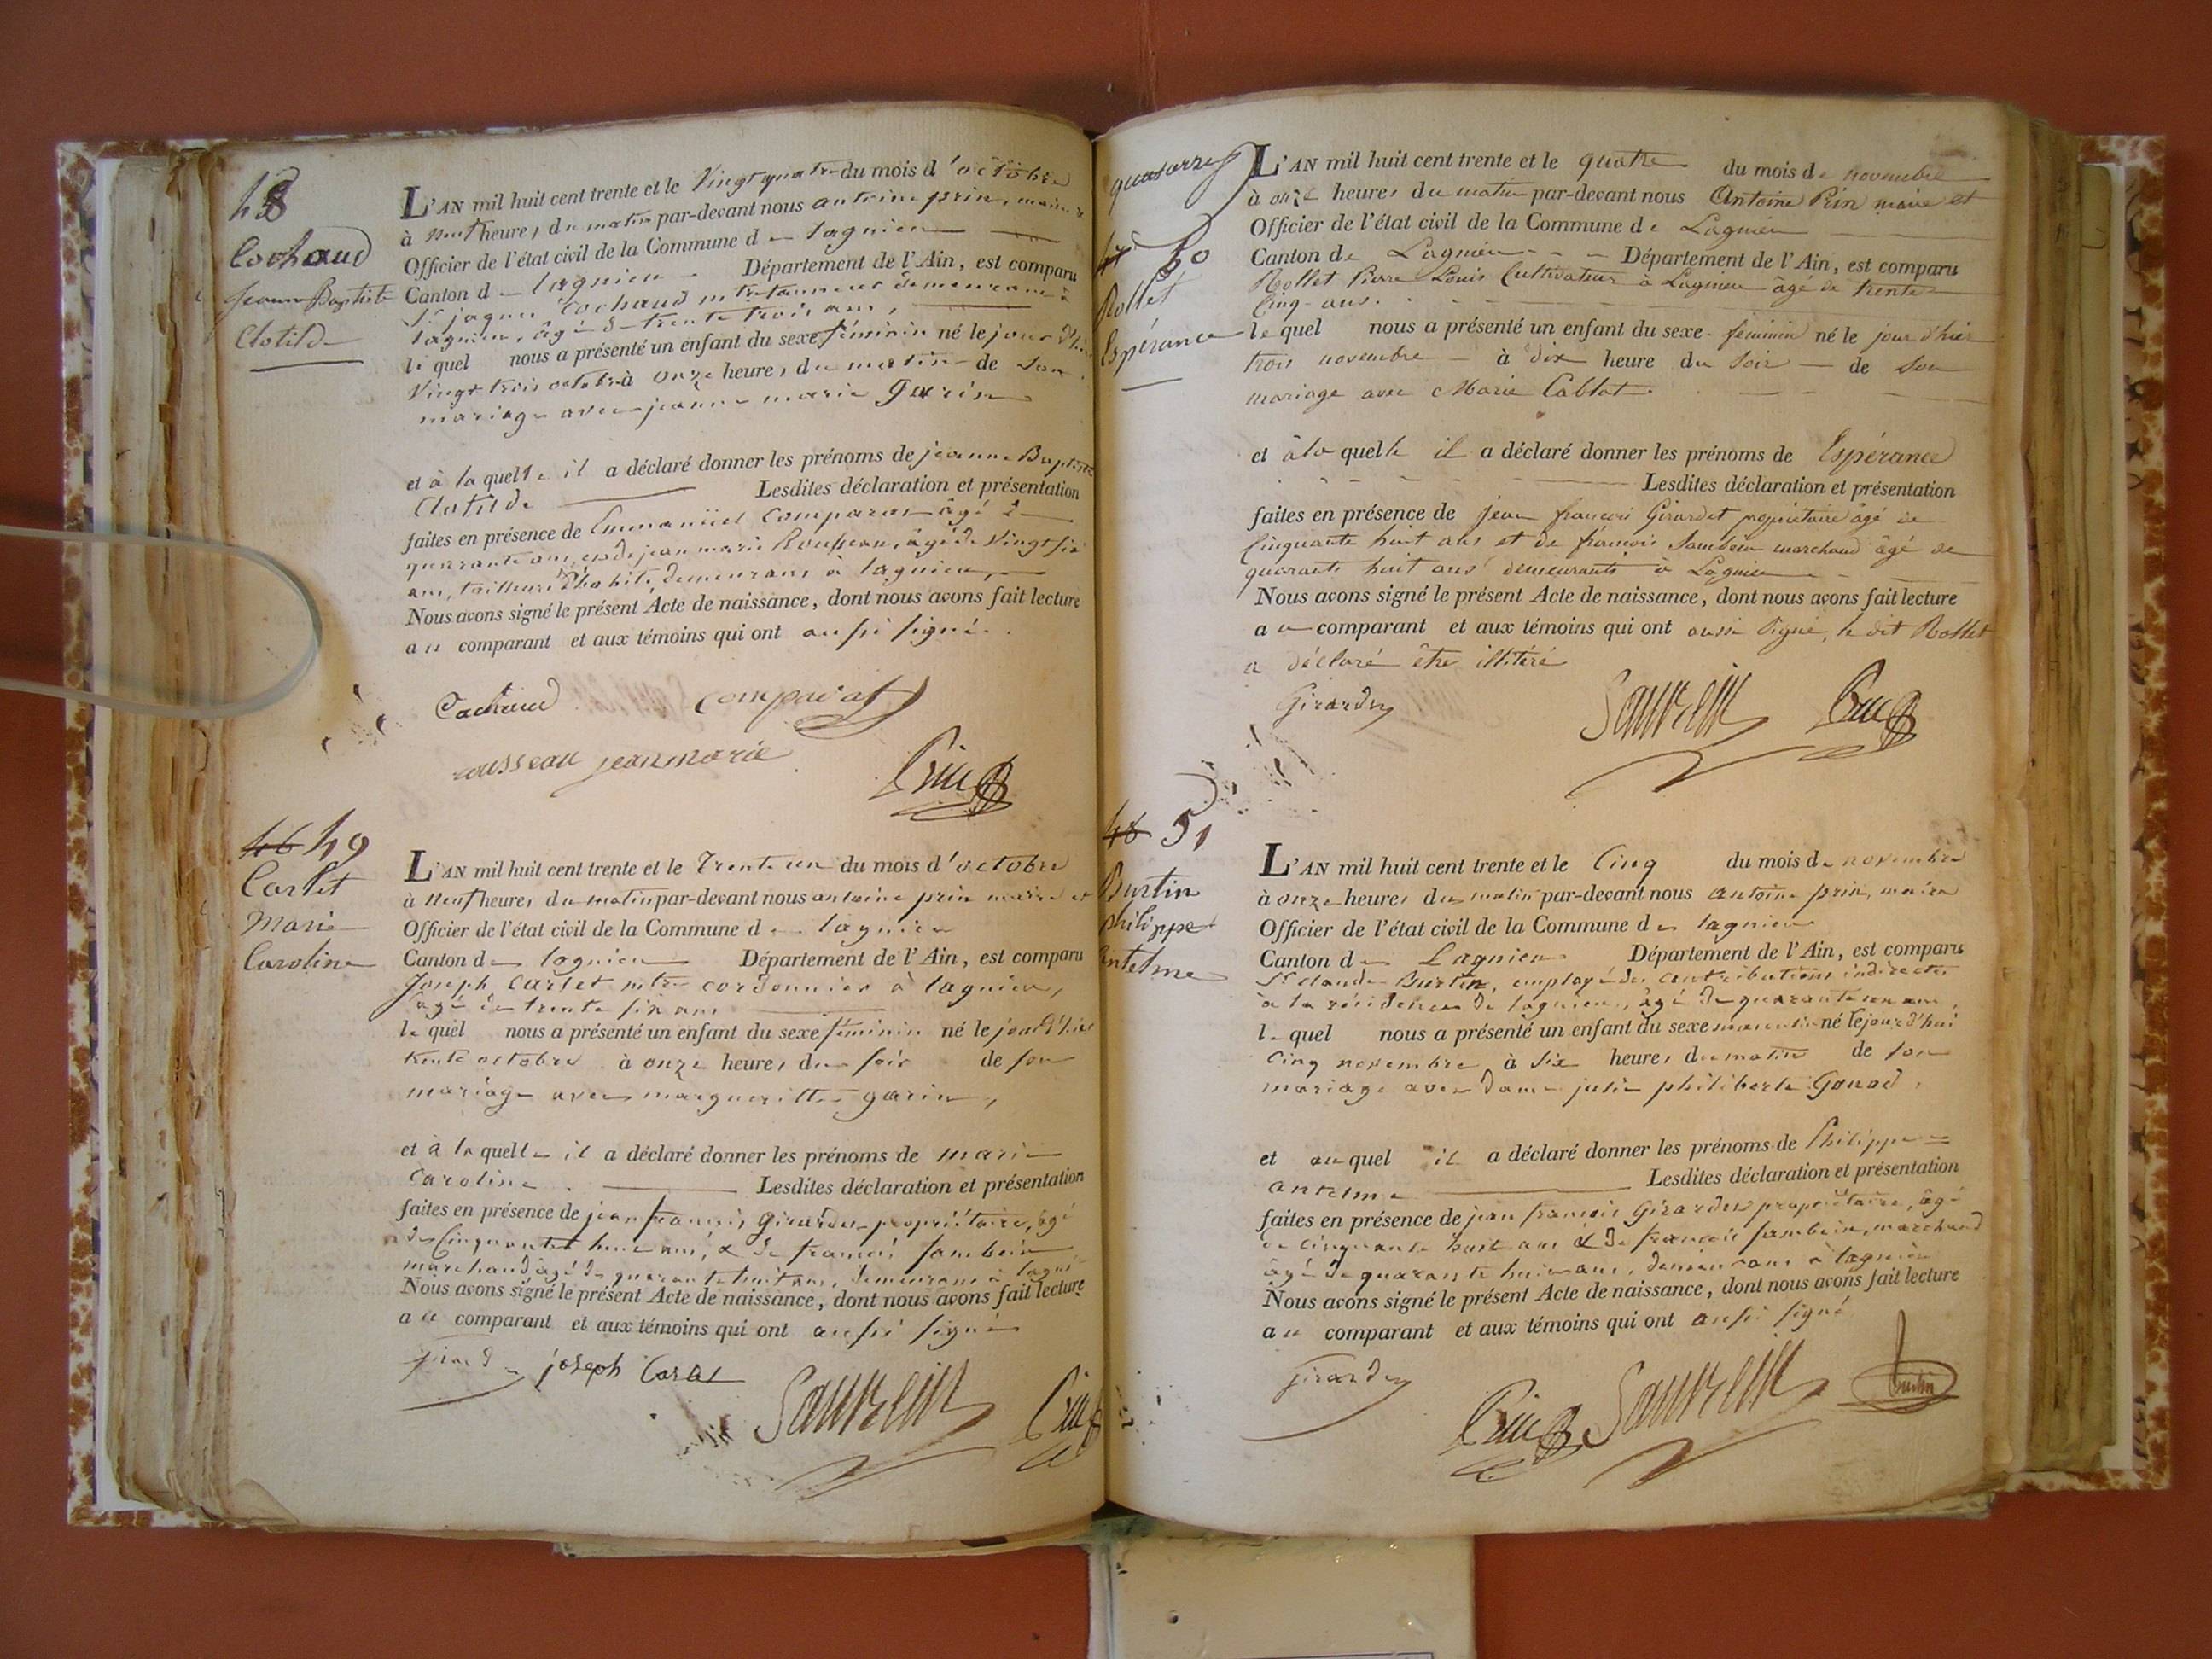 48
Cochaud
Jeanne Baptiste
Clotilde
L'AN mil huit cent trente et le Vingt quatre du mois d'octobre
à neuf heures du matin par-devant nous antoine prin, maire
Officier de l'état civil de la Commune de lagnieu
Canton de lagnieu Département de l'Ain, est comparu
Sr jaques Cochaud mtre tanneur demeurant à
lagnieu, âgé de trente trois ans,
le quel nous a présenté un enfant du sexe féminin né le jour d'hier
Vingt trois octobre à onze heures du matin de son
mariage avec jeanne marie Garin
et à la quelle il a déclaré donner les prénoms de jeanne Baptiste
Clotilde Lesdites déclaration et présentation
faites en présence de Emmanuel Comparat âgé de
quarante ans, et de jean marie Rousseau, âgé de Vingt six
ans, tailleurs d'habits, demeurans à lagnieu,
Nous avons signé le présent Acte de naissance, dont nous avons fait lecture
au comparant et aux témoins qui ont aussi signé.
Cochaud comparat
rousseau jean marie
Prin
46 49
Carlet
Marie
Caroline
L'AN mil huit cent trente et le Trente un du mois d'octobre
à neuf heures du matin par-devant nous antoine prin maire et
Officier de l'état civil de la Commune de lagnieu
Canton de lagnieu Département de l'Ain, est comparu
Joseph Carlet mtre cordonnier à lagnieu,
âgé de trente six ans
le quel nous a présenté un enfant du sexe féminin né le jour d'hier
trente octobre à onze heures du soir de son
mariage avec margueritte garin,
et à la quelle il a déclaré donner les prénoms de marie
Caroline Lesdites déclaration et présentation
faites en présence de jean francois Girardet propriétaire, âgé
de Cinquante huit ans, & de francois sambein
marchand âgé de quarante huit ans, demeurans à lagnieu
Nous avons signé le présent Acte de naissance, dont nous avons fait lecture
au comparant et aux témoins qui ont aussi signé
joseph Carlet Prin
47 50
Rollet
Espérance
L'AN mil huit cent trente et le quatre du mois de novembre
à onze heures du matin par-devant nous Antoine Prin maire et
Officier de l'état civil de la Commune de Lagnieu
Canton de Lagnieu Département de l'Ain, est comparu
Rollet Pierre Louis Cultivateur à Lagnieu âgé de trente
Cinq ans.
le quel nous a présenté un enfant du sexe féminin né le jour d'hier
trois novembre à dix heure du soir de son
mariage avec Marie Cablat.
et à la quelle il a déclaré donner les prénoms de Espérance
Lesdites déclaration et présentation
faites en présence de jean francois Girardet propriétaire âgé de
Cinquante huit ans et de francois Sambein marchand âgé de
quarante huit ans demeurants à Lagnieu
Nous avons signé le présent Acte de naissance, dont nous avons fait lecture
au comparant et aux témoins qui ont aussi signé, le dit Rollet
a déclaré être illitéré
Girardet Prin
48 51
Burtin
philippe
antelme
L'AN mil huit cent trente et le Cinq du mois de novembre
à onze heures du matin par-devant nous antoine prin, maire
Officier de l'état civil de la Commune de lagnieu
Canton de Lagnieu Département de l'Ain, est comparu
Sr claude Burtin, employé des contributions indirectes
à la résidence de lagnieu, âgé de quarante un ans,
le quel nous a présenté un enfant du sexe masculin né le jourd'hui
Cinq novembre à six heures du matin de son
mariage avec dame julie philiberte Gonod,
et au quel il a déclaré donner les prénoms de Philippe
antelme Lesdites déclaration et présentation
faites en présence de jean francois Girardet propriétaire, âgé
de cinquante huit ans & de francois sambein, marchand
âgé de quarante huit ans, demeurans à lagnieu
Nous avons signé le présent Acte de naissance, dont nous avons fait lecture
au comparant et aux témoins qui ont aussi signé
Girardet Prin Burtin